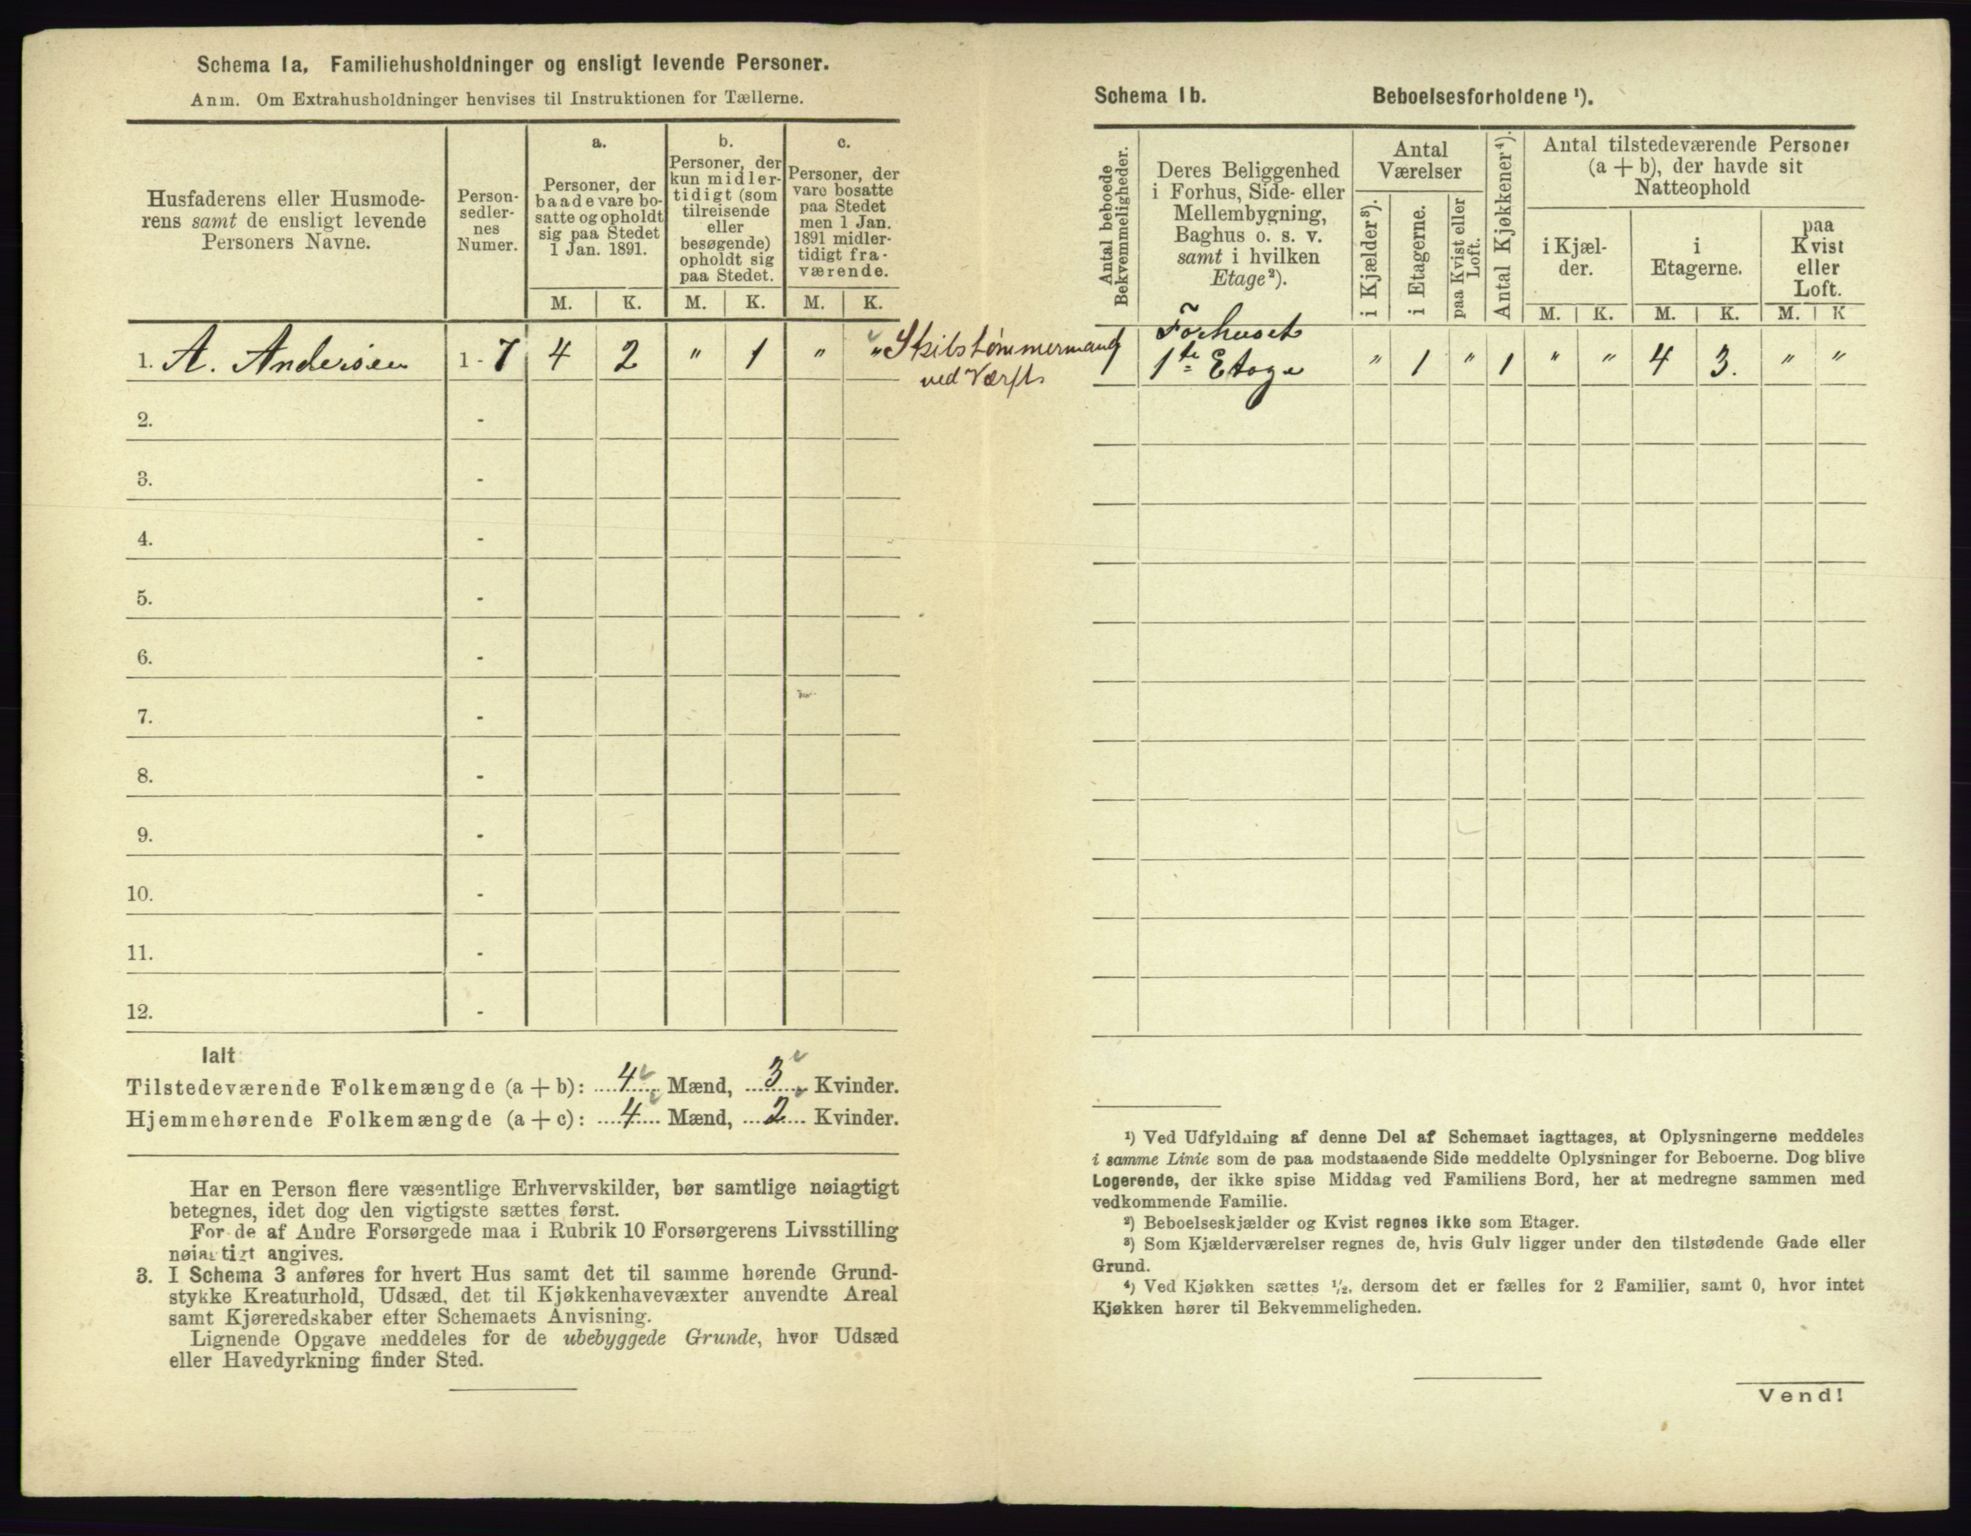 Schema 1a, Familiehusholdninger og ensligt levende Personer.
Anm. Om Extrahusholdninger henvises til Instruktionen for Tællerne.
Husfaderens eller Husmode-
rens samt de ensligt levende
Personers Navne.
Person-
sedler-
nes
Numer.
a.
Personer, der
baade vare bo-
satte og opholdt
sig paa Stedet
1 Jan. 1891.
b.
Personer, der
kun midler-
tidigt (som
tilreisende
eller
besøgende)
opholdt sig
paa Stedet.
c.
Personer, der
vare bosatte
paa Stedet
men 1 Jan.
1891 midler-
tidigt fra-
værende.
M. K. M. K. M. K.
1. A. Andersen 1 - 7 4 2 " 1 " " Skibstømmermand
ved Værft
2. -
3. -
4. -
5. -
6. -
7. -
8. -
9. -
10. -
11. -
12. -
Ialt
Tilstedeværende Folkemængde (a + b): 4 Mænd, 3 Kvinder.
Hjemmehørende Folkemængde (a + c): 4 Mænd, 2 Kvinder.
Har en Person flere væsentlige Erhvervskilder, bør samtlige nøiagtigt
betegnes, idet dog den vigtigste sættes først.
For de af Andre Forsørgede maa i Rubrik 10 Forsørgerens Livsstilling
nøiagtigt angives.
3. I Schema 3 anføres for hvert Hus samt det til samme hørende Grund-
stykke Kreaturhold, Udsæd, det til Kjøkkenhavevæxter anvendte Areal
samt Kjøreredskaber efter Schemaets Anvisning.
Lignende Opgave meddeles for de ubebyggede Grunde, hvor Udsæd
eller Havedyrkning finder Sted.
Schema 1b. Beboelsesforholdene ¹).
Antal beboede
Bekvemmeligheder.
Deres Beliggenhed
i Forhus, Side- eller
Mellembygning,
Baghus o. s. v.
samt i hvilken
Etage²).
Antal
Værelser
i Kjælder³).
i Etagerne.
paa Kvist eller
Loft.
Antal Kjøkkener⁴).
Antal tilstedeværende Personer
(a + b), der havde sit
Natteophold
i Kjæl-
der.
i
Etagerne.
paa
Kvist
eller
Loft.
M. K. M. K. M. K
Forhuset
1 1te Etage " 1 " 1 " " 4 3. " "
¹) Ved Udfyldning af denne Del af Schemaet iagttages, at Oplysningerne meddeles
i samme Linie som de paa modstaaende Side meddelte Oplysninger for Beboerne. Dog blive
Logerende, der ikke spise Middag ved Familiens Bord, her at medregne sammen med
vedkommende Familie.
²) Beboelseskjælder og Kvist regnes ikke som Etager.
³) Som Kjælderværelser regnes de, hvis Gulv ligger under den tilstødende Gade eller
Grund.
⁴) Ved Kjøkken sættes ½, dersom det er fælles for 2 Familier, samt 0, hvor intet
Kjøkken hører til Bekvemmeligheden.
Vend!